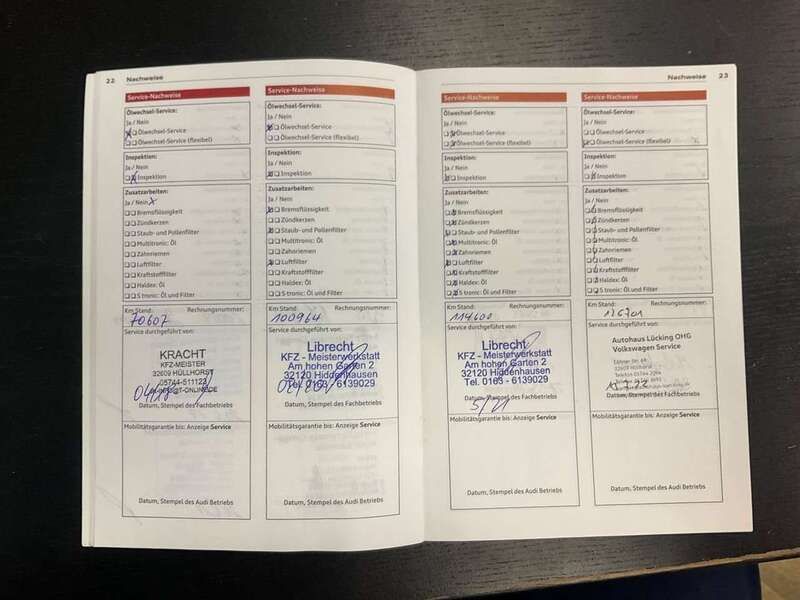 22 Nachweise
Service-Nachweise
Ölwechsel-Service:
Ja / Nein
Ölwechsel-Service
Ölwechsel-Service (flexibel)
Inspektion:
Ja / Nein
Inspektion
Zusatzarbeiten:
Ja / Nein
Bremsflüssigkeit
Zündkerzen
Staub- und Pollenfilter
Multitronic: Öl
Zahnriemen
Luftfilter
Kraftstofffilter
Haldex: Öl
S tronic: Öl und Filter
Km Stand: Rechnungsnummer:
70607
Service durchgeführt von:
KRACHT
KFZ-MEISTER
32609 HÜLLHORST
05744-511123
Datum, Stempel des Fachbetriebs
Mobilitätsgarantie bis: Anzeige Service
Datum, Stempel des Audi Betriebs
Service-Nachweise
Ölwechsel-Service:
Ja / Nein
Ölwechsel-Service
Ölwechsel-Service (flexibel)
Inspektion:
Ja / Nein
Inspektion
Zusatzarbeiten:
Ja / Nein
Bremsflüssigkeit
Zündkerzen
Staub- und Pollenfilter
Multitronic: Öl
Zahnriemen
Luftfilter
Kraftstofffilter
Haldex: Öl
S tronic: Öl und Filter
Km Stand: Rechnungsnummer:
100964
Service durchgeführt von:
Librecht
KFZ - Meisterwerkstatt
Am hohen Garten 2
32120 Hiddenhausen
Tel. 0163 - 6139029
Datum, Stempel des Fachbetriebs
Mobilitätsgarantie bis: Anzeige Service
Datum, Stempel des Audi Betriebs
Nachweise 23
Service-Nachweise
Ölwechsel-Service:
Ja / Nein
Ölwechsel-Service
Ölwechsel-Service (flexibel)
Inspektion:
Ja / Nein
Inspektion
Zusatzarbeiten:
Ja / Nein
Bremsflüssigkeit
Zündkerzen
Staub- und Pollenfilter
Multitronic: Öl
Zahnriemen
Luftfilter
Kraftstofffilter
Haldex: Öl
S tronic: Öl und Filter
Km Stand: Rechnungsnummer:
114600
Service durchgeführt von:
Librecht
KFZ - Meisterwerkstatt
Am hohen Garten 2
32120 Hiddenhausen
Tel. 0163 - 6139029
5/21
Datum, Stempel des Fachbetriebs
Mobilitätsgarantie bis: Anzeige Service
Datum, Stempel des Audi Betriebs
Service-Nachweise
Ölwechsel-Service:
Ja / Nein
Ölwechsel-Service
Ölwechsel-Service (flexibel)
Inspektion:
Ja / Nein
Inspektion
Zusatzarbeiten:
Ja / Nein
Bremsflüssigkeit
Zündkerzen
Staub- und Pollenfilter
Multitronic: Öl
Zahnriemen
Luftfilter
Kraftstofffilter
Haldex: Öl
S tronic: Öl und Filter
Km Stand: Rechnungsnummer:
126701
Service durchgeführt von:
Autohaus Lücking OHG
Volkswagen Service
Datum, Stempel des Fachbetriebs
Mobilitätsgarantie bis: Anzeige Service
Datum, Stempel des Audi Betriebs